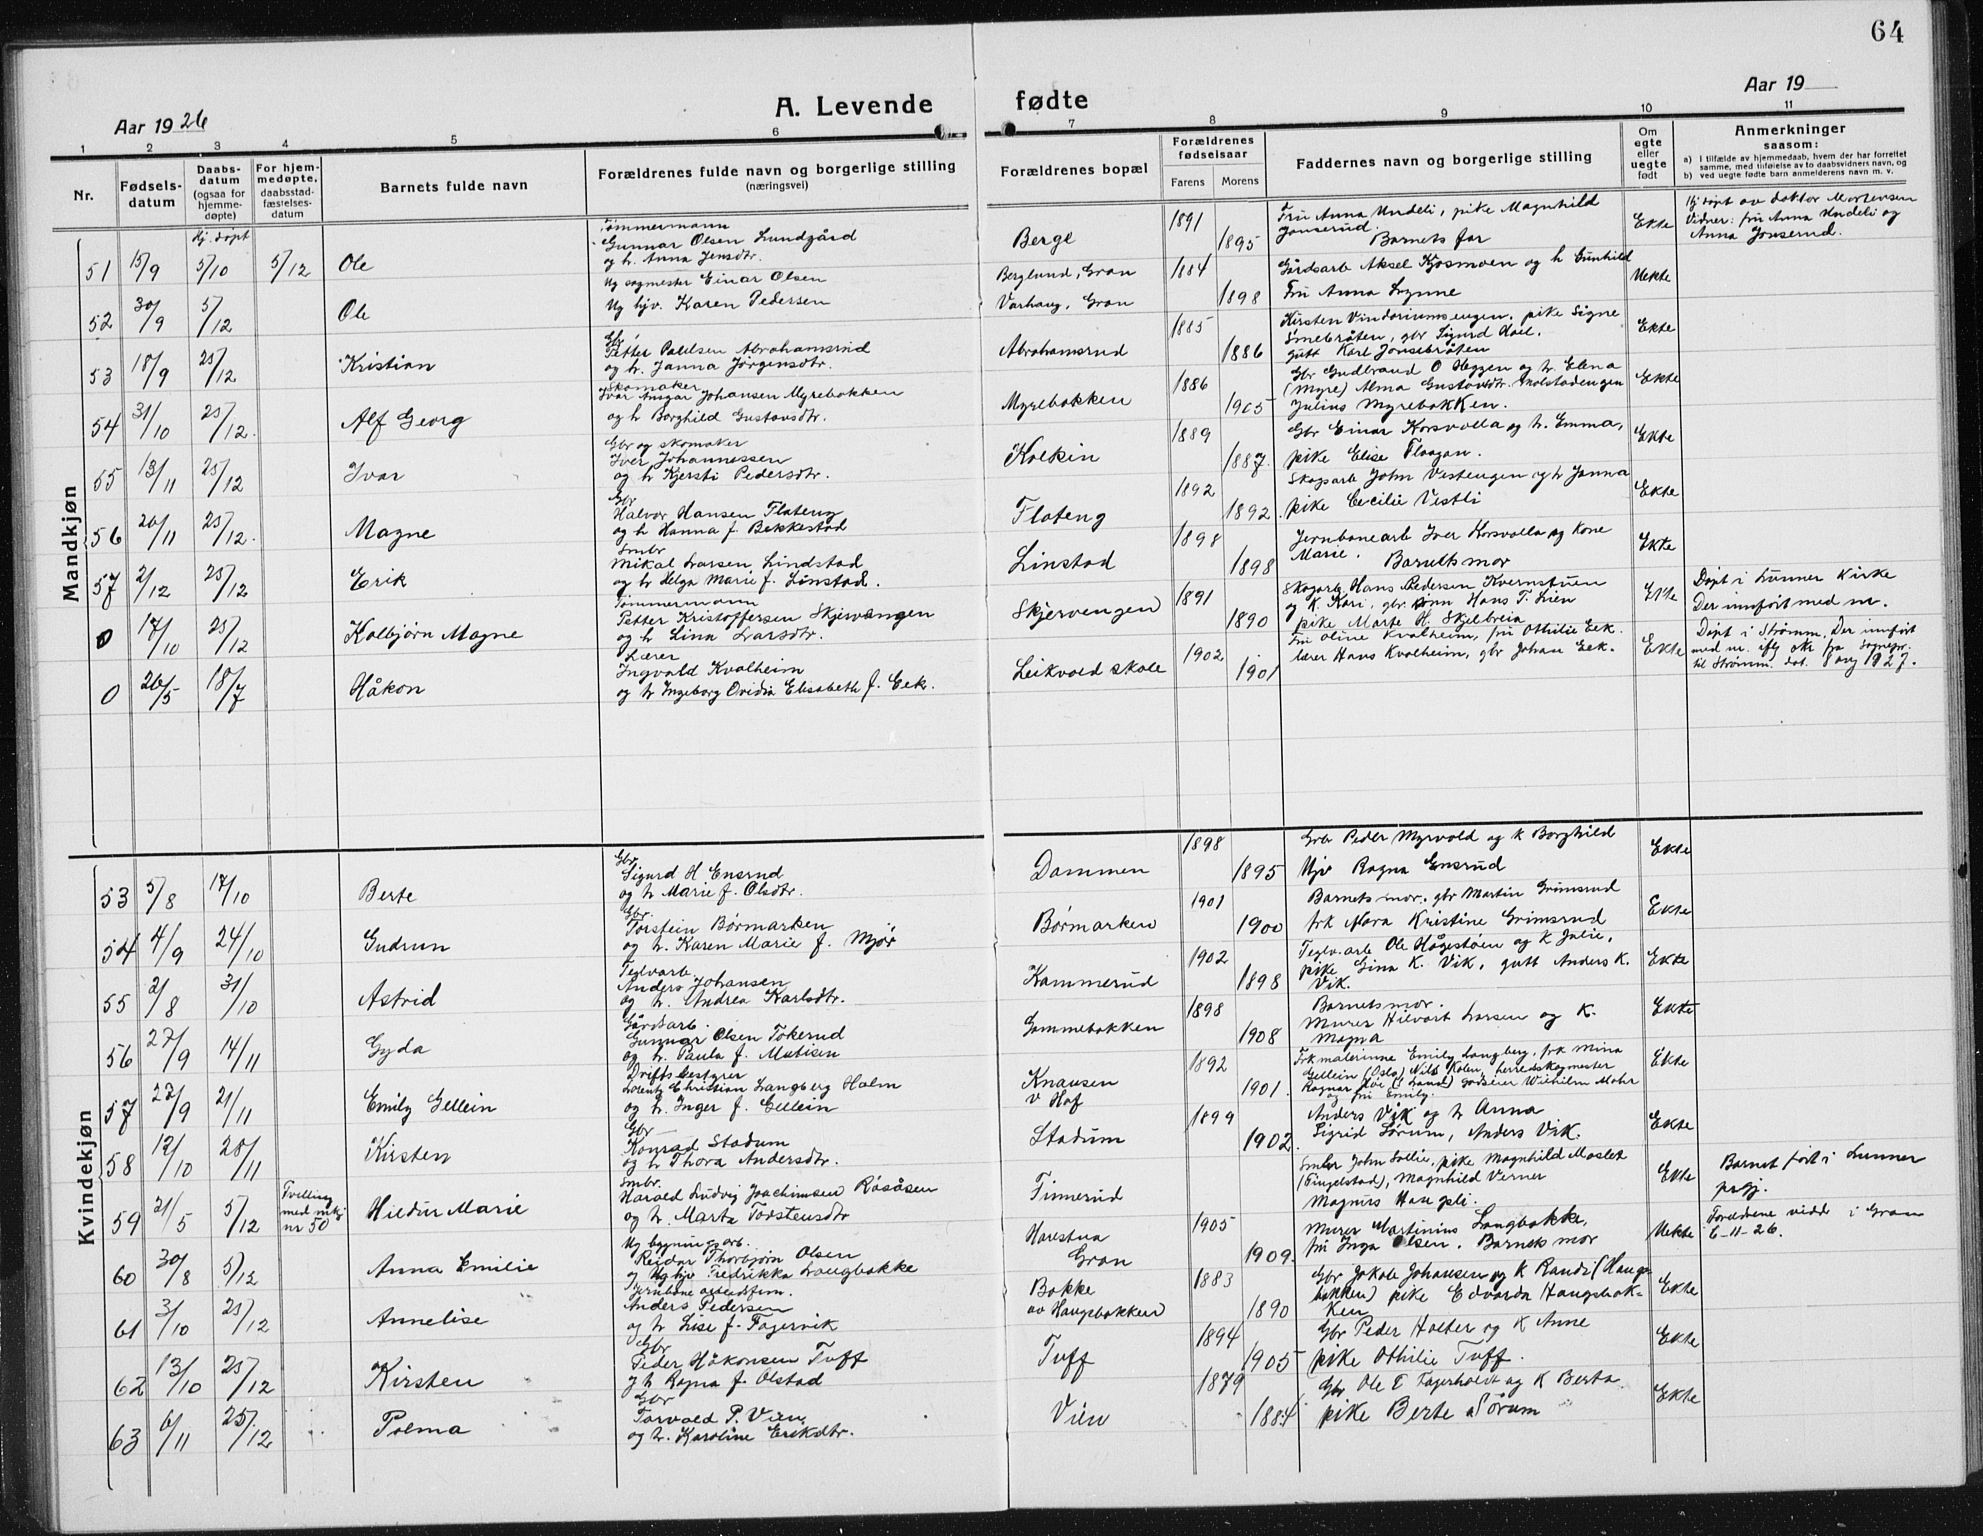 64
A. Levende fødte
Aar 1926
Aar 19
1 2 3 4 5 6 7 8 9 10 11
Nr.
Fødsels-
datum
Daabs-
datum
(ogsaa for
hjemme-
døpte)
For hjem-
medøpte,
daabsstad-
fæstelses-
datum
Barnets fulde navn
Forældrenes fulde navn og borgerlige stilling
(næringsvei)
Forældrenes bopæl
Forældrenes
fødselsaar
Farens Morens
Faddernes navn og borgerlige stilling
Om
egte
eller
uegte
født
Anmerkninger
saasom:
a) I tilfælde av hjemmedaab, hvem der har forrettet
samme, med tilføielse av to daabsvidners navn, og
b) ved uegte fødte barn anmelderens navn m. v.
Mandkjøn
Hj. døpt
51 15/9 5/10 5/12 Ole
Tømmermann
Gunnar Olsen Lundgård
og h. Anna Jensdtr.
Berge 1891 1895
Fru Anna Undeli, pike Magnhild
Jonserud. Barnets far
Ekte
Hj døpt av doktor Mortensen
Vidner: fru Anna Undeli og
Anna Jonserud.
52 30/9 5/12 Ole
Ug sagmester Einar Olsen
Ug hjv. Karen Pedersen
Berglund, Gran
Varhaug, Gran
1884 1898
Gårdsarb Aksel Kjosmoen og h Gunhild
Fru Anna Lynne
Uekte
53 18/9 25/12 Kristian
Gbr
Petter Paulsen Abrahamsrud
og h. Janna Jørgensdtr.
Abrahamsrud 1885 1886
Kirsten Vindoriumsengen, pike Signe
Smebråten, gbr Sigurd Hoel,
gutt Karl Jonsebråten
Ekte
54 31/10 25/12. Alf Georg
Skomaker
Ivar Ansgar Johansen Myrebakken
og h Borghild Gustavsdtr.
Myrebakken 1886 1905
Gbr Gudbrand O Heggen og h. Elena
(Myre) Alma Gustavsdtr. Molstadengen
Julius Myrebakken.
Ekte
55 13/11 25/12 Ivar
Gbr og skomaker
Iver Johannessen
og h Kjersti Pedersdtr.
Kolkin 1889 1887.
Gbr Einar Korsvolla og h. Emma,
pike Elise Flaagan.
Ekte
56 26/11 25/12. Magne
Gbr
Halvor Hansen Flateng
og h Hanna f. Bekkestad
Flateng 1892 1892.
Skogsarb John Vestengen og h Janna
pike Cecilie Vestli
Ekte
57 2/12 25/12 Erik
Smbr
Mikal Larsen Lindstad
og h Helga Marie f. Linstad.
Linstad 1898 1898
Jernbanearb Iver Korsvolla og kone
Marie. Barnets mor
Ekte
0 17/10 25/12 Kolbjørn Magne
Tømmermann
Petter Kristoffersen Skjervangen
og h Lina Larsdtr.
Skjervengen 1891 1890
Skogarb Hans Pedersen Kvernstuen
og K. Kari, gbr. sønn Hans T. Lien
pike Marte H. Skjelbreia
Ekte
Døpt i Lunner Kirke
Der innført med nr.
0 26/5 18/7 Håkon
Lærer
Ingvald Kvalheim
og h Ingeborg Ovidia Elisabeth f. Eek.
Leikvold skole 1902 1901
Fru Oline Kvalheim, fru Othilie Eek.
lærer Hans Kvalheim, gbr Johan Eek.
Ekte
Døpt i Strømm. Der innført
med nr. iflg akt fra Sognepr.
til Strømm. dat. 8 aug 1927.
Kvindekjøn
53 5/8 17/10 Berte
Gbr
Sigurd H Ensrud
og h Marie f. Olsdtr.
Dammen 1898 1895
Gbr Peder Myrvold og K Borghild
Hjv Ragna Ensrud
Ekte
54 4/9 24/10 Gudrun
Gbr.
Torstein Børmarken
og h. Karen Marie f. Mjør
Børmarken 1901 1900
Barnets mor. gbr Martin Grimsrud
frk Nora Kristine Grimsrud
Ekte
55 2/8 31/10 Astrid
Teglvarb
Anders Johansen
og h. Andrea Karlsdtr.
Kammerud 1902 1898
Teglv.arb Ole Hågestøen og K Julie,
pike Gina K. Vik, gutt Anders K.
Vik.
Ekte
56 27/9 14/11 Gyda
Gårdsarb.
Gunnar Olsen Tokerud
og h. Paula f. Matisen
Gammebakken 1898 1908
Barnets mor.
Murer Hilvart Larsen og K.
Magna
Ekte
57 22/9 21/11 Emily Gellein
Driftsbestyrer
Lorentz Christian Langberg Holm
og h. Inger f. Gellein
Knausen
v Hof
1892 1901.
Frk malerinne Emily Langberg, frk Mina
Gellein (Oslo) Nils Kolen, herredskogmester
Ragnar Hoe (S Land) godseier Wilhelm Mohr
og fru Emily.
Ekte
58 12/10 28/11 Kirsten
Gbr
Konrad Stadum
og h Thora Andersdtr.
Stadum 1899 1902.
Anders Vik og h Anna
Sigrid Sørum, Anders Vik.
Ekte
59 21/5 5/12
Tvilling
med mkj
nr 50
Hildur Marie
Smbr.
Harald Ludvig Joachimsen Råsåsen
og h. Marta Torstensdtr
Finnerud
Smbr John Sollie, pike Magnhild Moslet
(Tingelstad), Magnhild Verner
Magnus Haugsli.
Ekte
Barnet født i Lunner
prgj.
60 30/8 5/12 Anna Emilie
Ug bygningsarb.
Reidar Thorbjørn Olsen
og Ug hjv Fredrikka Langbakke
Harestua
Gran
1905 1909.
Murer Martinius Langbakke,
fru Inga Olsen. Barnets mor
Uekte
Foreldrene viddi i Gran
6-11-26.
61 3/10 25/12 Annelise
Jernbanearbeidsfm.
Anders Pedersen
og h Lise f. Fagervik
Bakke
av Haugsbakken
1883 1890
Gbr Jakob Johansen og K Randi (Haugs-
bakken) pike Edvarda Haugsbak-
ken
Ekte
62 13/10 25/12 Kirsten
Gbr
Peder Håkonsen Tuff
og h Ragna f. Olstad
Tuff 1894 1905
Gbr Peder Holter og K Anne
pike Othilie Tuff.
Ekte
63 6/11 25/12 Polma
Gbr
Torvald P. Vien
og h. Karoline Eriksdtr.
Vien 1879 1884
Gbr Ole E Fagerholdt og K Berta
pike Berte Sørum
Ekte